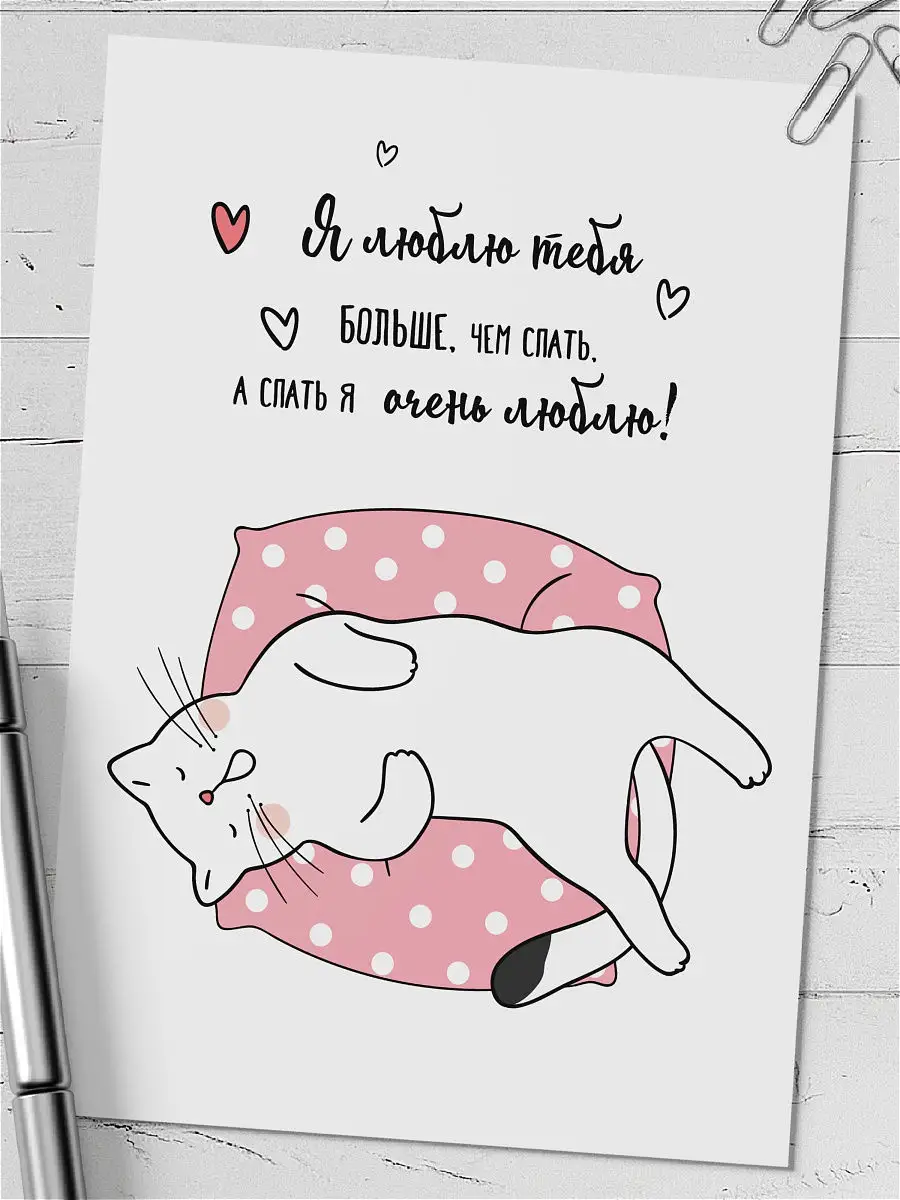 Я люблю тебя
БОЛЬШЕ, ЧЕМ СПАТЬ,
А СПАТЬ Я очень люблю!